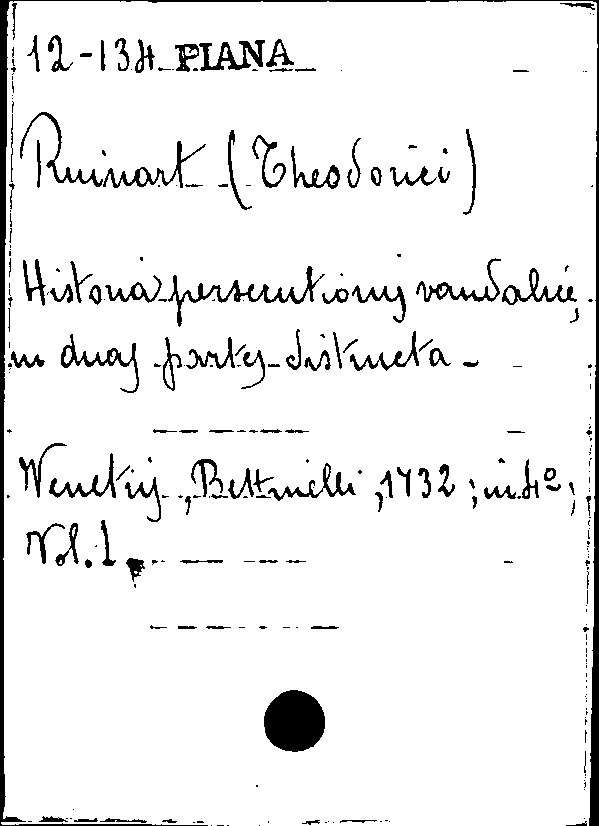 12-134 PIANA
Ruinart (Theodorici)
Historia persecutionis vandalicæ,
in duas partes distincta -
Venetiis, Bettinelli, 1732; in 4º;
Vol. 1